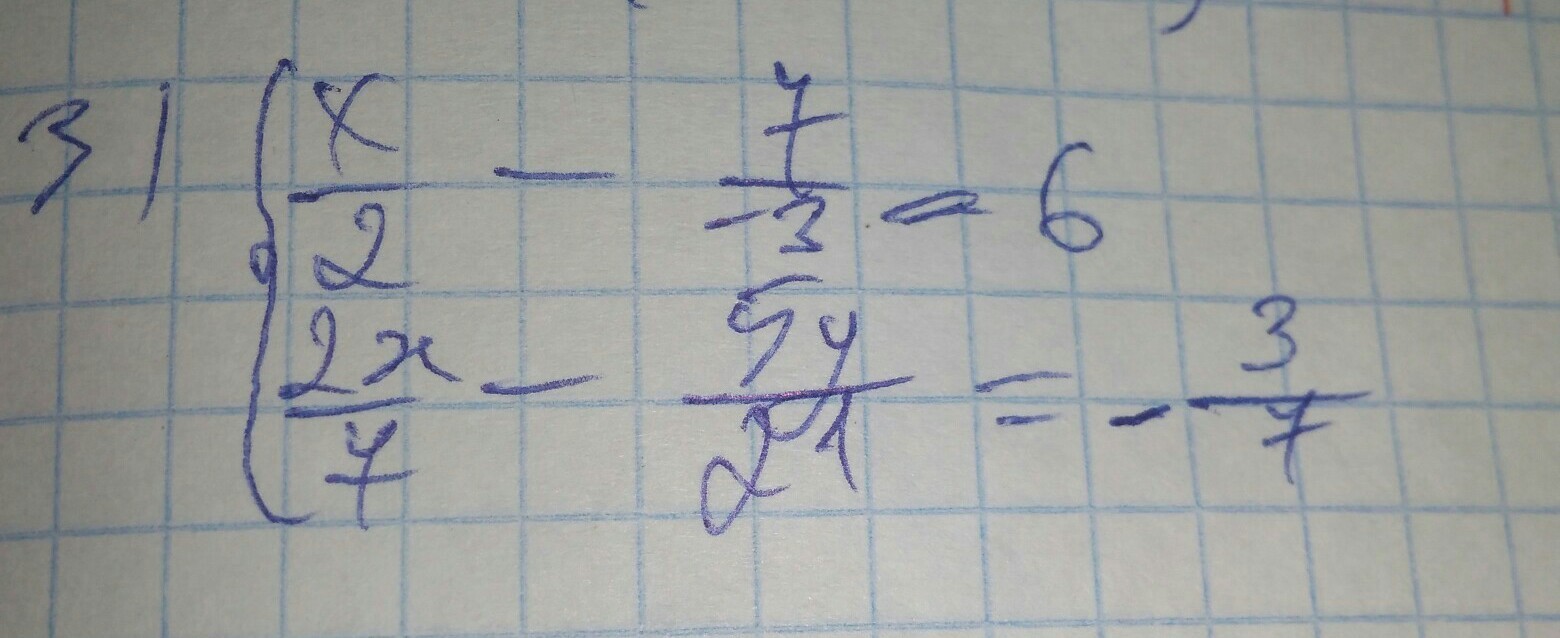 3) { x/2 - 7/-3 = 6
2x/7 - 5y/21 = - 3/7